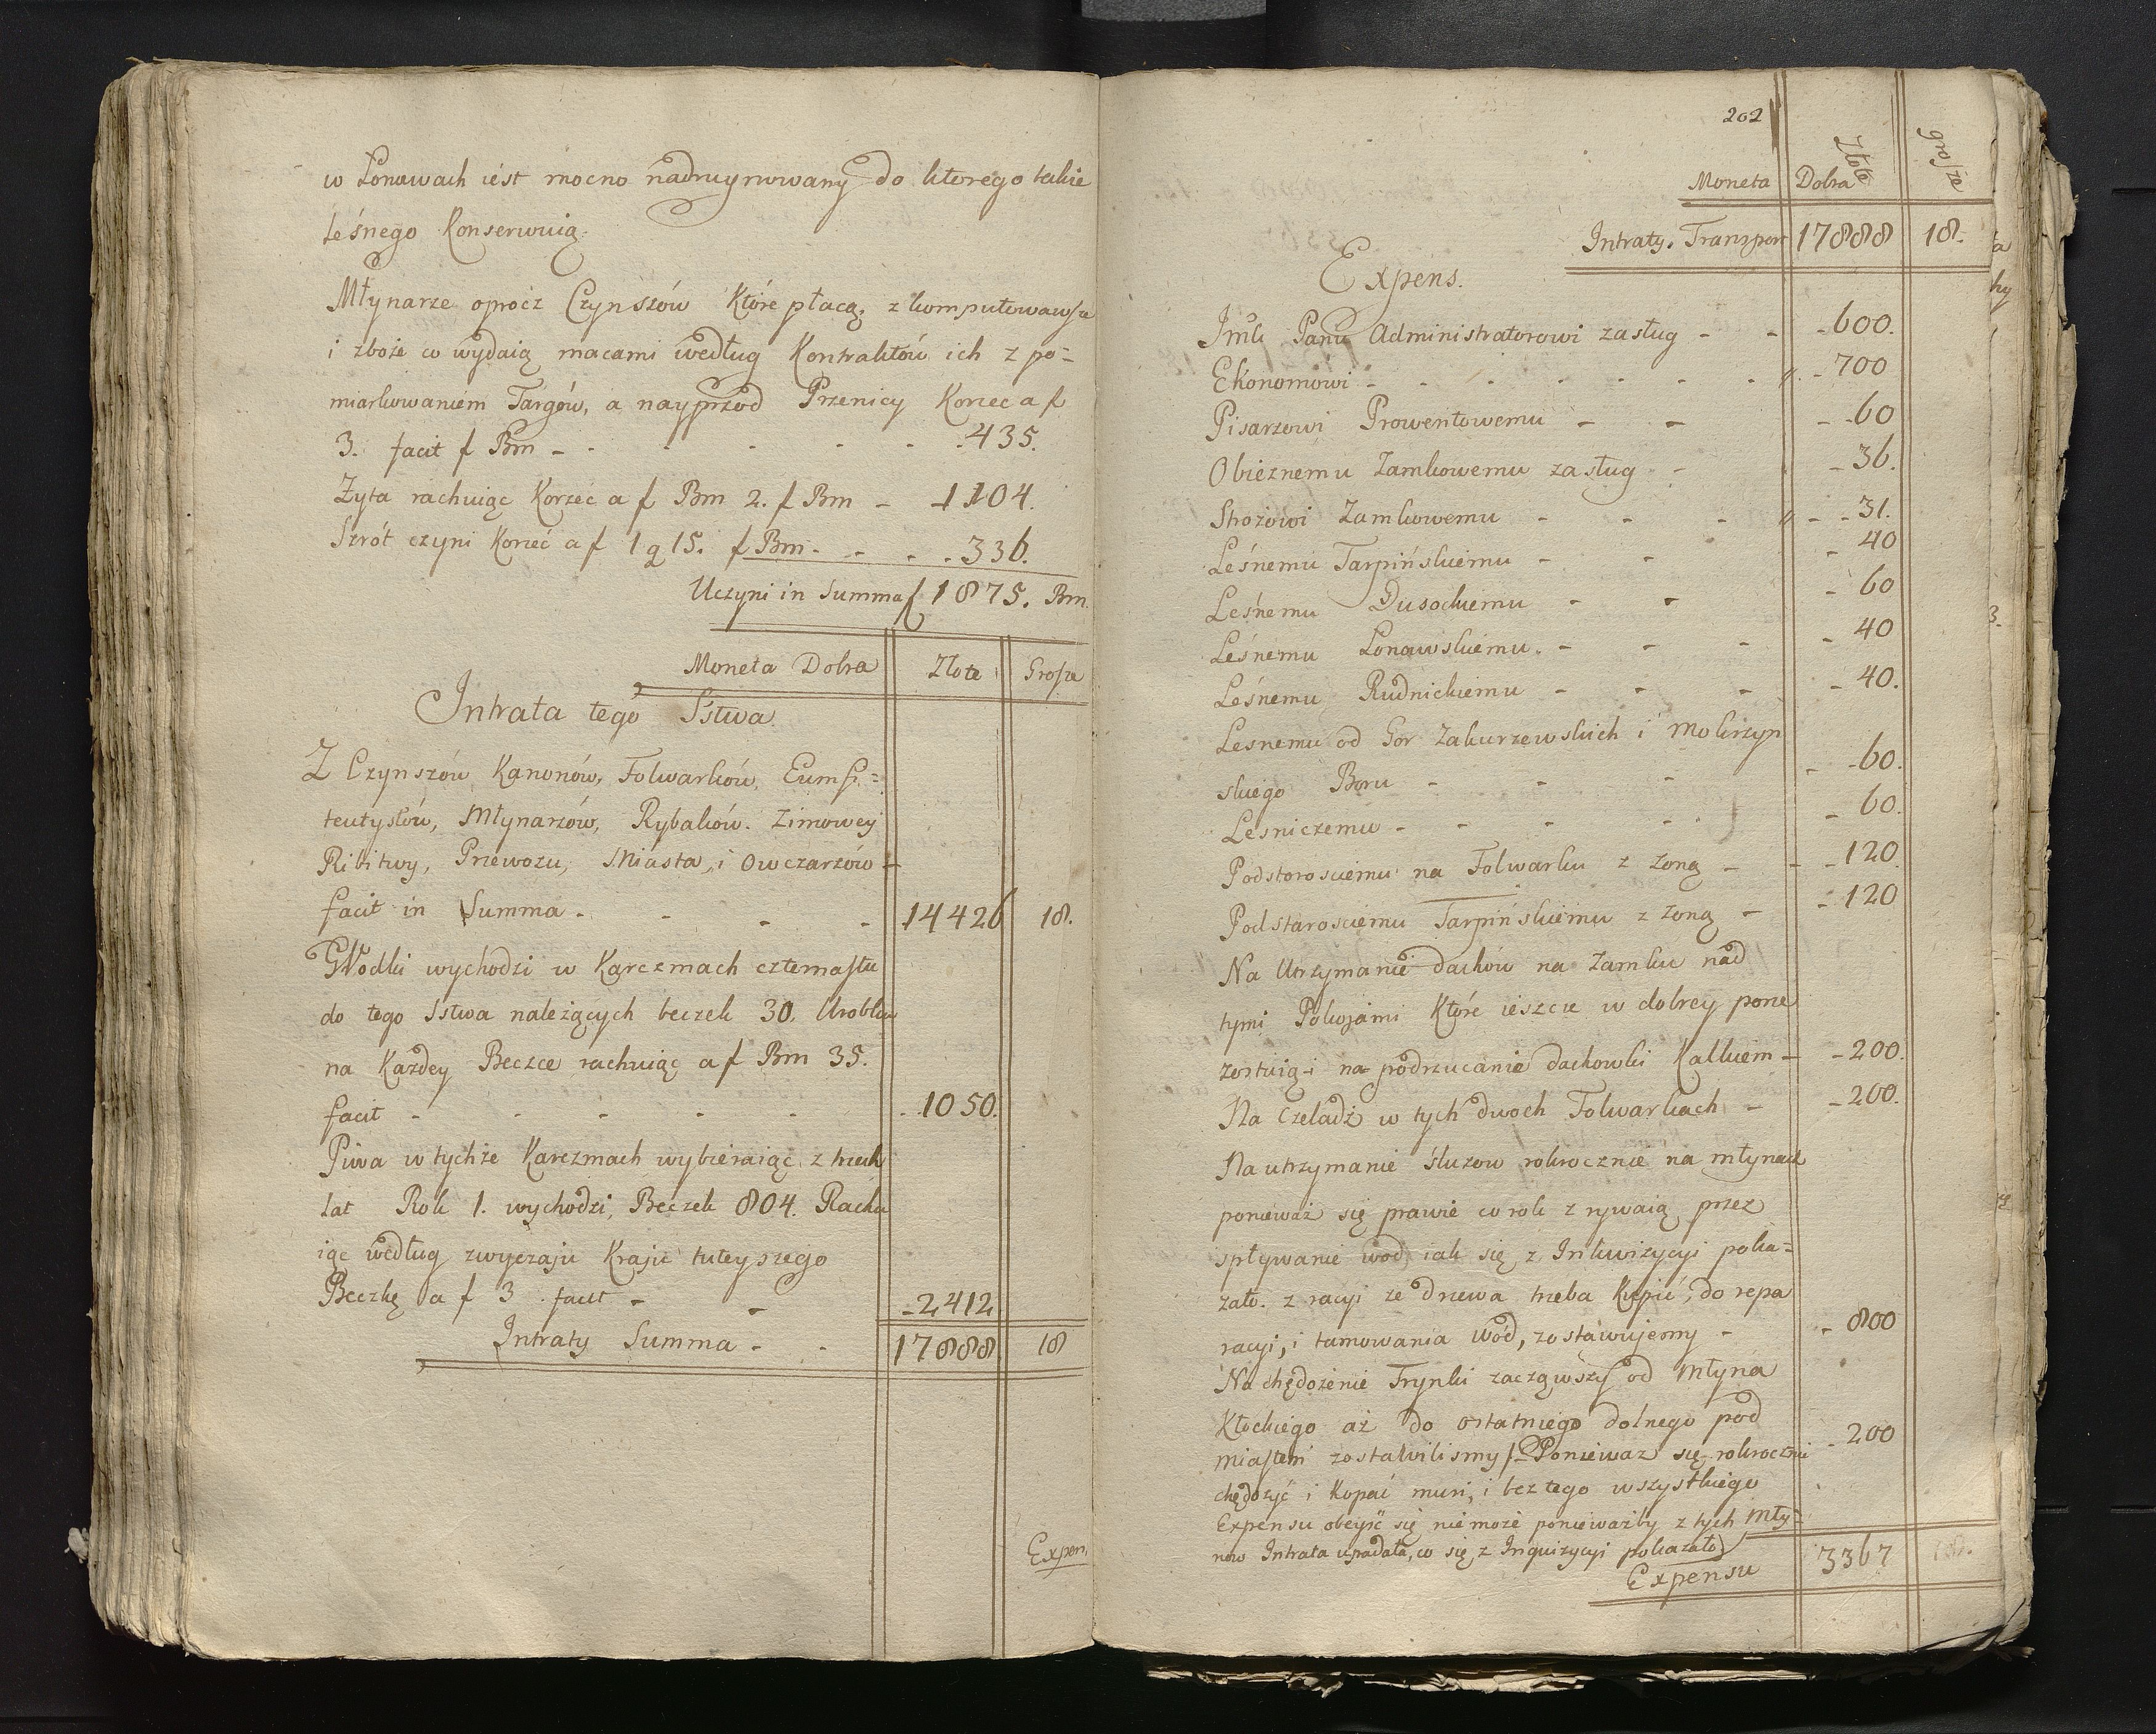 w Łonawach iest mocno nadruynowany do ktorego takie
leśnego Konserwuią.
Młynarze oprocz Czynszów Które płacą, zkomputowawsz
i zboże co wydaią macami według Kontraktów ich z po=
miarkowaniem Targów, a nayprzod Przenicy Korzec a f
3. facit f Bm - - - - - - 435.
Zyta rachuiąc Korzec a f Bm 2. f Bm - 1104.
Szrót czyni Korzec a f 1 g 15. f Bm - - - 336.
Uczyni in Summa f 1875. Bm.
Moneta Dobra Złote Grosze
Intrata tego Sstwa
Z Czynszów, Kanonów, Folwarków, Eumfi=
teutysów, Młynarzów, Rybaków. Zimowey
Ribitwy, Przewozu, Miasta, i Owczarzów -
facit in Summa - - - - 14426 18.
GWodki wychodzi w Karczmach czternastu
do tego Sstwa należących beczek 30. Urobku
na Każdey Beczce rachuiąc a f Bm 35.
facit - - - - - 1050.
Piwa w tychże Karczmach wybieraiąc z trzech
lat Rok 1. wychodzi, Beczek 804. Rachu
iąc według zwyczaju Kraju tuteyszego
Beczkę a f 3 facit - - 2412
Intraty Summa - - 17888 18
Expen.
202
Moneta Dobra Złote grosze
Intraty. Transport 17888 18.
Expens.
Jmć Panu Administratorowi zasług - - - 600.
Ekonomowi - - - - - - - 700
Pisarzowi Prowentowemu - - - 60
Obieznemu Zamkowemu zasług - - 36.
Strozowi Zamkowemu - - - - - 31.
Leśnemu Tarpińskiemu - - - 40
Leśnemu Dusockiemu - - - 60
Leśnemu Łonawskiemu. - - - - 40
Leśnemu Rudnickiemu - - - - 40.
Lesnemu od Gor Zakurzewskich i Mokrzyn
skiego Boru - - - - 60.
Lesniczemu - - - - - 60.
Podstarosciemu na Folwarku z zoną - - - 120.
Podstarosciemu Tarpińskiemu z zoną - - 120
Na Utrzymanie dachów na Zamku nad
tymi Pokojami Które ieszcze w dobrey pone
zostuią i na podrzucanie dachowki Kalkiem - - 200.
Na Czeladź w tych dwoch Folwarkach - - 200.
Na utrzymanie śluzow rokrocznie na młynach
ponieważ się prawie co rok zrywaią przez
spływanie wod, iak się z Inkwizycyi poka=
zało. z racyi ze drzewa trzeba Kupić, do repa
racyi, i tamowania Wód, zostawujemy - - 800
Na chędożenie Trynki zacząwszy od Młyna
Kłockiego aż do ostatniego dolnego pod
miastem zostawilismy /: Poniewaz się rokrocznie - 200
chędożyć i Kopać musi, i bez tego wszystkiego
Expensu obeyść się nie może ponieważby z tych Mły=
now Intrata upadała, co się z Inquizycyi pokazało)
Expensu 3367